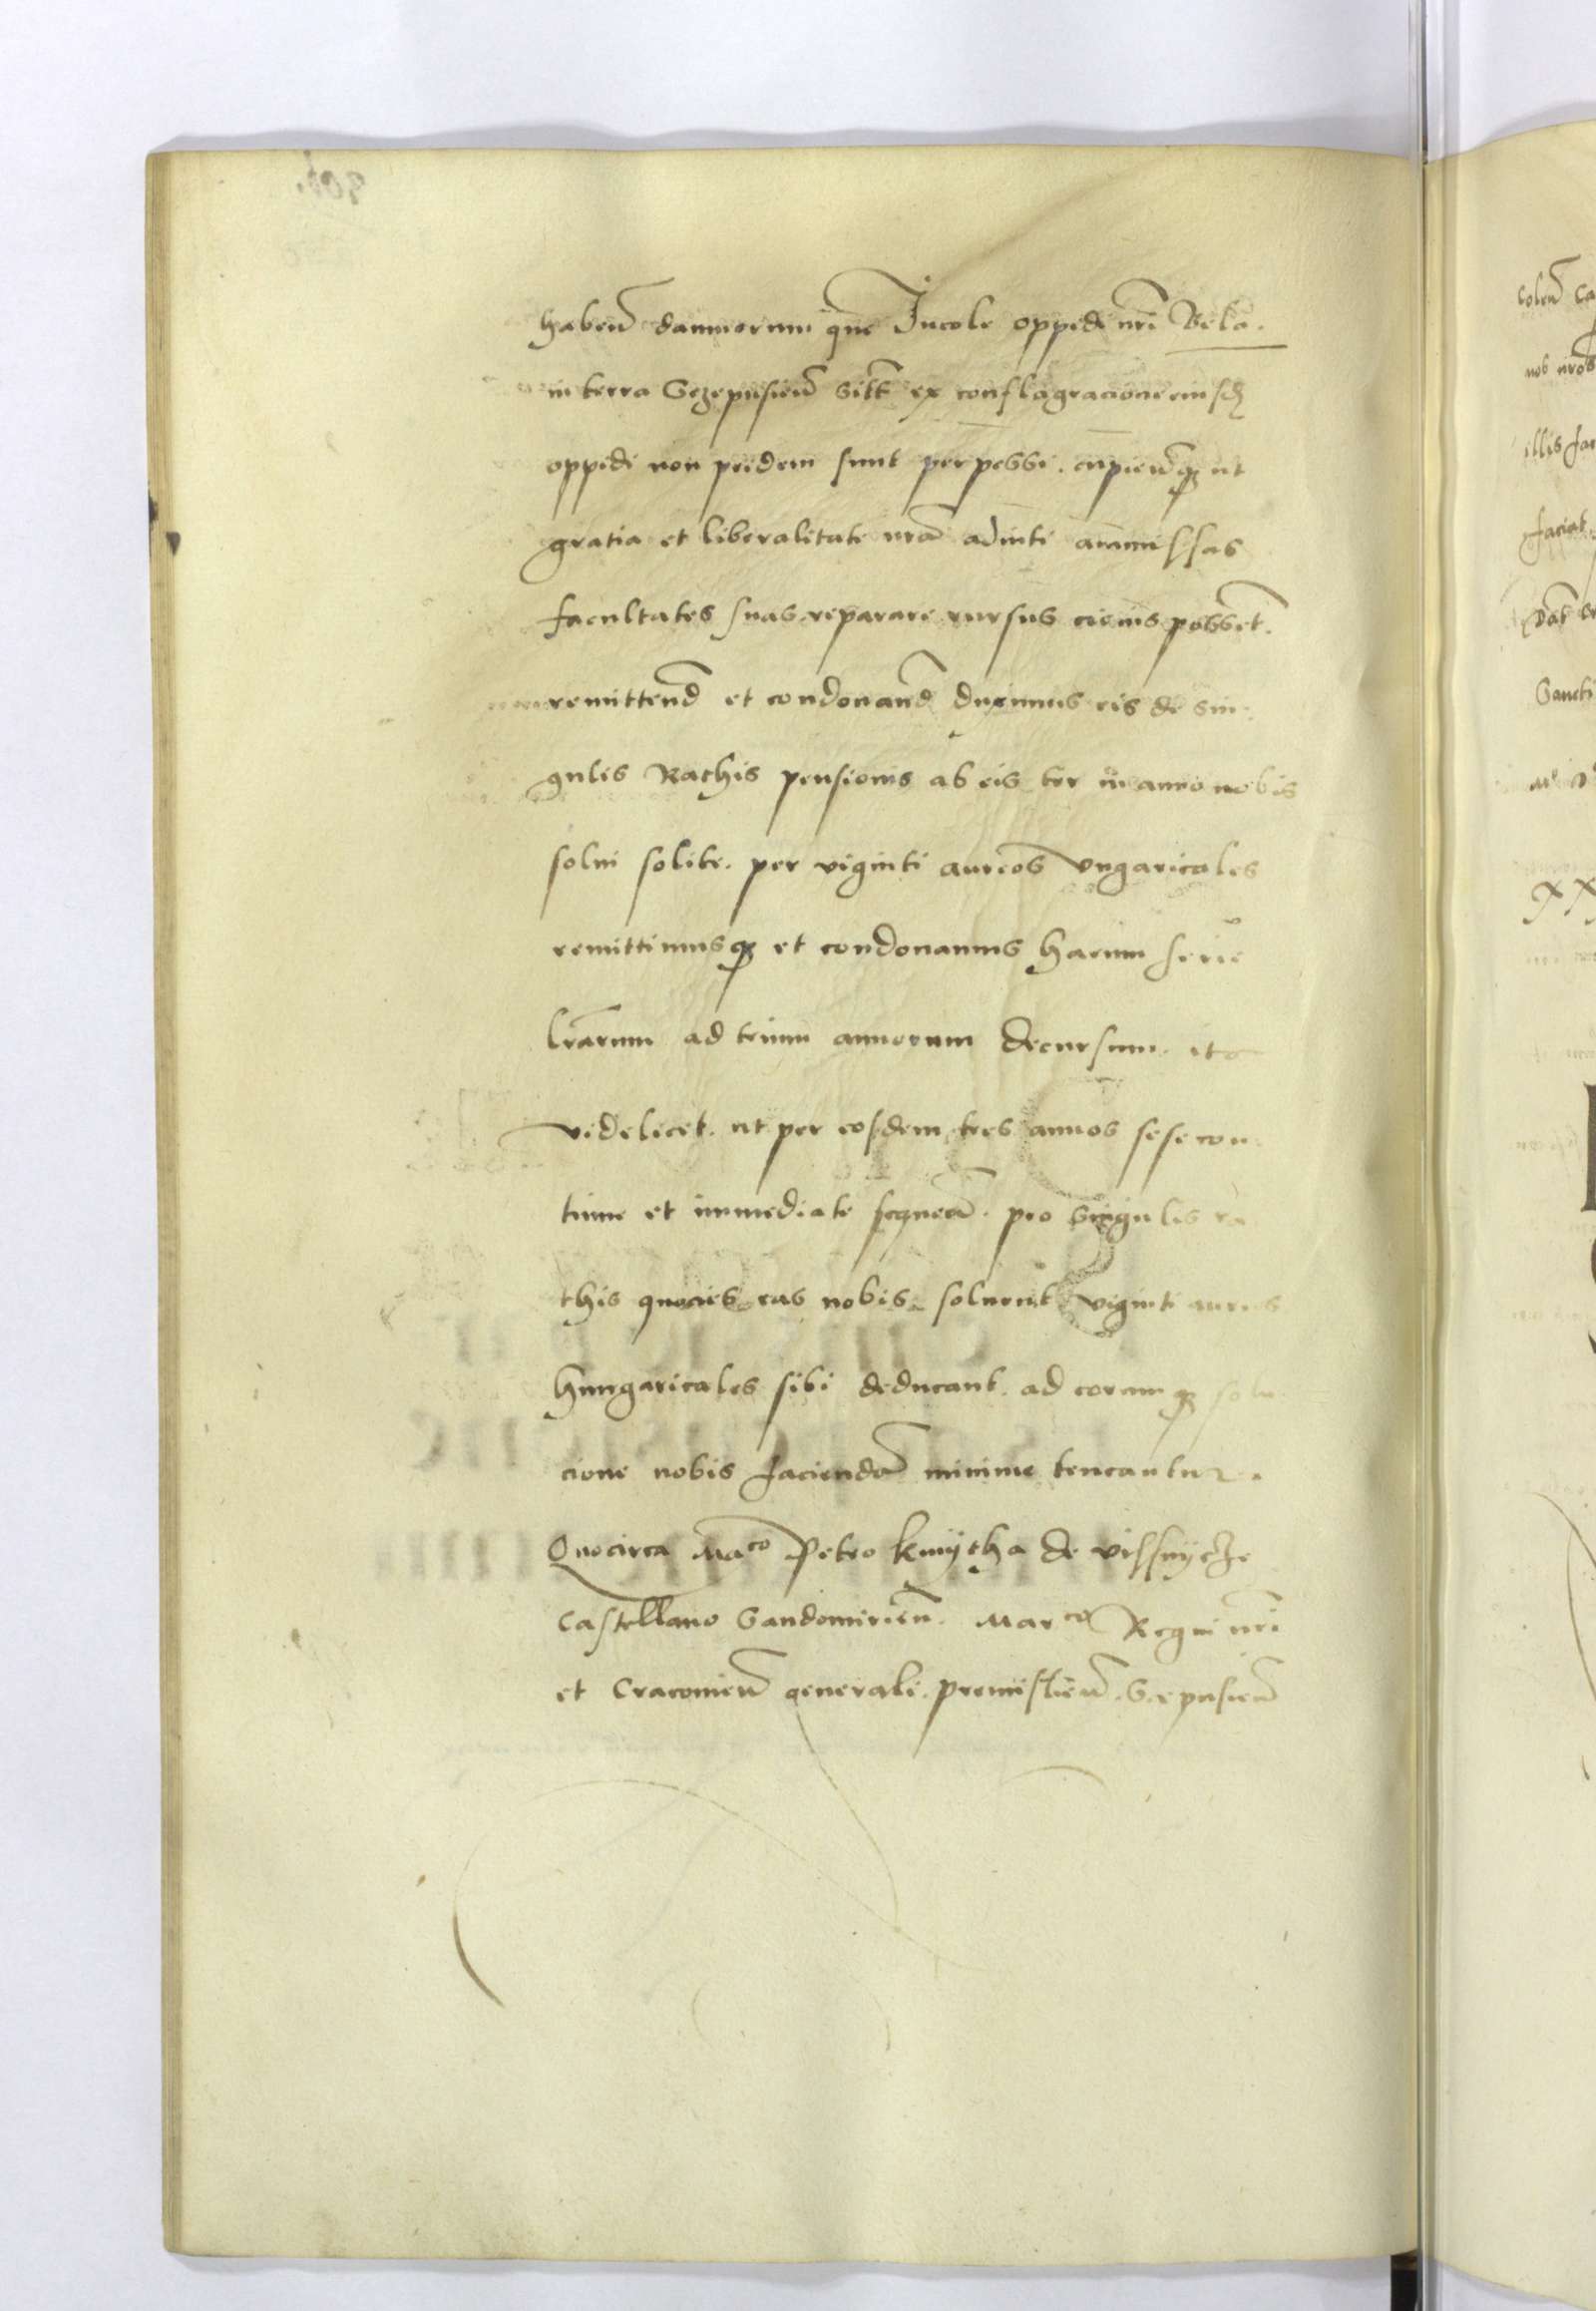 habeñ damnorum que Incole oppidi nri Bela.
in terra Sczepusieñ sitt ex conflagracione eiusdẽ
oppidi non pridem sunt perpessi. cupieñq ut
gratia et liberalitate nra adiuti ammissas
facultates suas reparare rursus cicius possent.
remittend et condonand duximus eis de sin
gulis Rathis pensionis ab eis ter in anno nobis
solui solite. per viginti aureos Vngaricales
remittimusq et condonamus harum serie
lrarum ad trium annorum decursum. ita
videlicet. ut per eosdem tres annos sese con
tinue et immediate sequeñ. pro singulis ra
this quocies eas nobis soluent viginti aureos
hungaricales sibi deducant. ad eorumq solu
cione nobis faciendã minime teneantur.
Quocirca Maco Petro Kmytha de Vissnycze
Castellano Sandomirieñ. Marco Regni nri
et Cracouieñ generali. Premislieñ. Scepusieñ